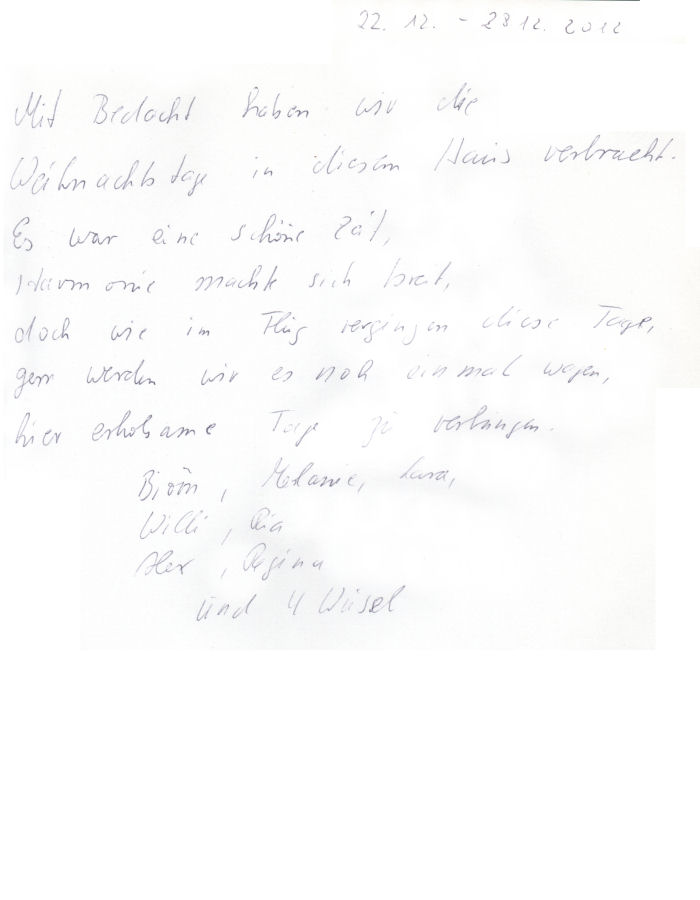 22. 12. - 28 12. 2012
Mit Bedacht haben wir die
Weihnachtstage in diesem Haus verbracht.
Es war eine schöne Zeit,
Harmonie machte sich breit,
doch wie im Flug vergingen diese Tage,
gern werden wir es noch einmal wagen,
hier erholsame Tage zu verbringen.
Björn, Melanie, Lara,
Willi, Ria
Alex, Regina
und 4 Wusel